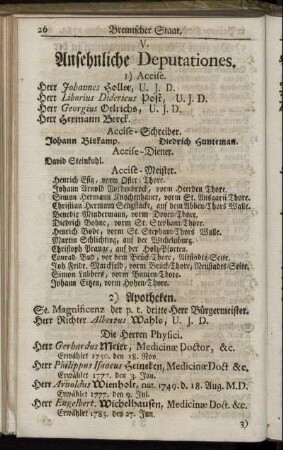 26 Bremischer Staat.
V.
Ansehnliche Deputationes.
1) Accise.
Herr Johannes Holler, U. J. D.
Herr Liborius Didericus Post, U. J. D.
Herr Georgius Oelrichs, U. J. D.
Herr Hermann Berck.
Accise-Schreiber.
Johann Biekamp. Diedrich Hunteman.
Accise-Diener.
David Steinkuhl.
Accise-Meister.
Henrich vorm Oster-Thore.
Johann Arnold vorm Heerden Thore.
Simon Hermann vorm St. Ansgarii Thore.
Christian Hermann auf dem Abben-Thors Walle.
Benedix Mindermann, vorm Doven-Thore.
Diedrich Bohne, vorm St. Stephani-Thore.
Henrich Bode, vorm St. Stephani-Thors Walle.
Martin Schlichting, auf der Wichelnburg.
Christoph Prange, auf der Holz-Pforten.
Conrad Bud, vor dem Brück-Thore, Altstadts-Seite.
Joh. Fridr. Marckfeld, vorm Brück-Thore, Neustadts-Seite.
Simon Lübbers, vorm Bunten-Thore.
Johann Eitzen, vorm Hohen-Thore.
2) Apotheken.
Se. Magnificenz der p. t. dritte Herr Bürgermeister.
Herr Richter Albertus Wahls, U. J. D.
Die Herren Physici.
Herr Gerhardus Meier, Medicinæ Doctor, &c.
Erwählet 1750. den 18. Nov.
Herr Philippus Isaacus Heineken, Medicinæ Doct &c.
Erwählet 1772. den 3. Jan.
Herr Arnoldus Wienholt, nat. 1749. d. 18. Aug. M.D.
Erwählet 1777. den 9. Jul.
Herr Engelbert. Wichelhausen, Medicinæ Doct. &c.
Erwählet 1783. den 27. Jun.
3)